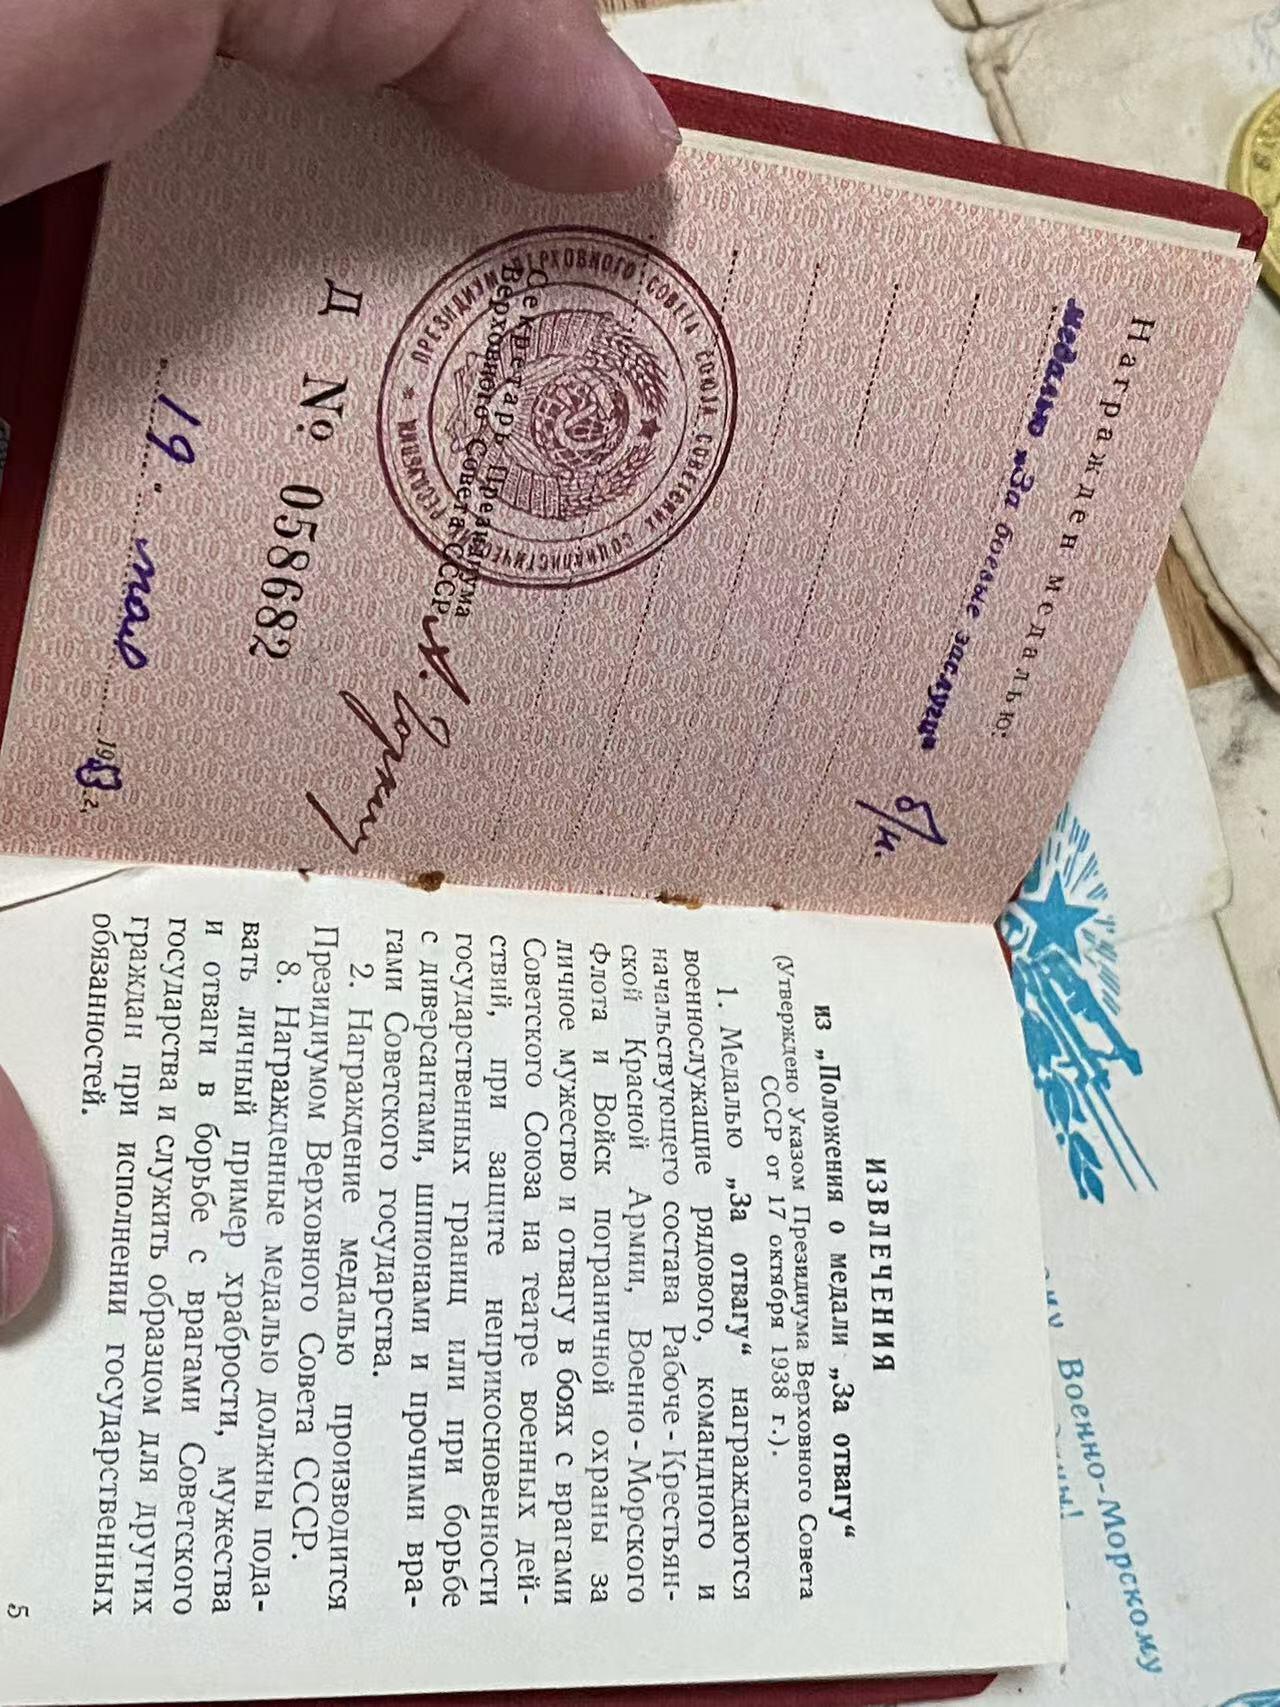 Награжден медалью:
медалью „За боевые заслуги“
б/н.
Секретарь Президиума
Верховного Совета СССР
ПРЕЗИДИУМ ВЕРХОВНОГО СОВЕТА СОЮЗА СОВЕТСКИХ СОЦИАЛИСТИЧЕСКИХ РЕСПУБЛИК
А. Горкин
Д № 058682
„19“ мая 1953 г.
ИЗВЛЕЧЕНИЯ
из „Положения о медали „За отвагу“
(Утверждено Указом Президиума Верховного Совета
СССР от 17 октября 1938 г.).
1. Медалью „За отвагу“ награждаются
военнослужащие рядового, командного и
начальствующего состава Рабоче-Крестьян-
ской Красной Армии, Военно-Морского
Флота и Войск пограничной охраны за
личное мужество и отвагу в боях с врагами
Советского Союза на театре военных дей-
ствий, при защите неприкосновенности
государственных границ или при борьбе
с диверсантами, шпионами и прочими вра-
гами Советского государства.
2. Награждение медалью производится
Президиумом Верховного Совета СССР.
8. Награжденные медалью должны пода-
вать личный пример храбрости, мужества
и отваги в борьбе с врагами Советского
государства и служить образцом для других
граждан при исполнении государственных
обязанностей.
5
Военно-Морскому